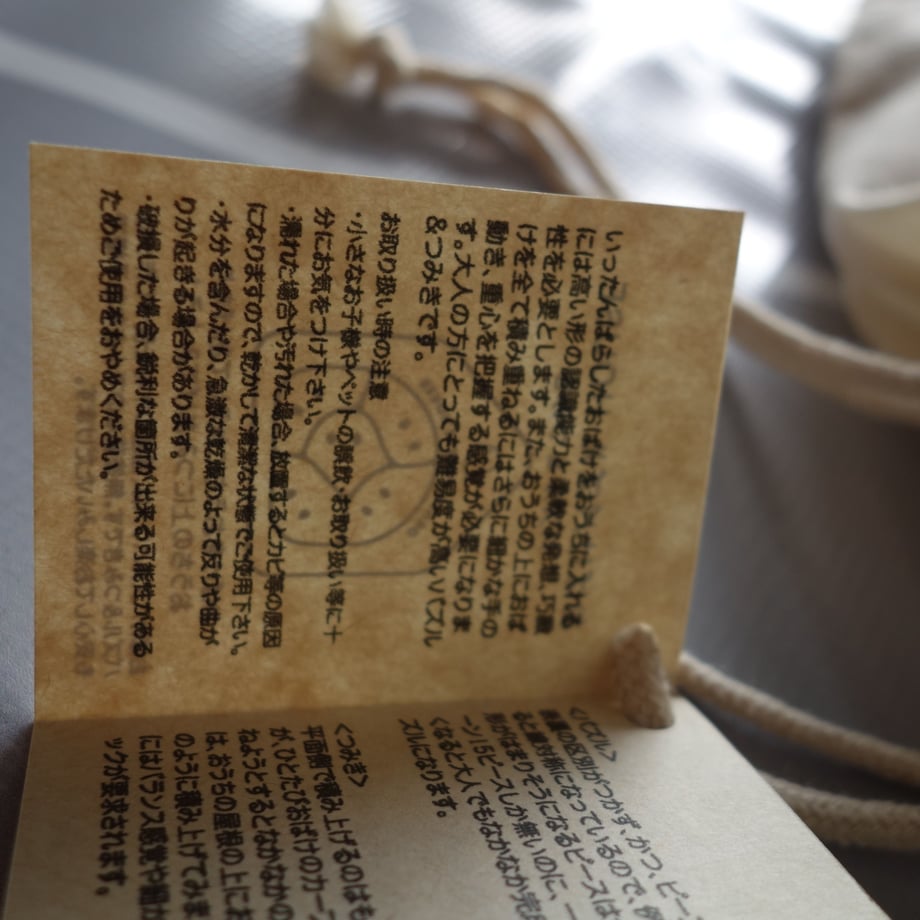 いったんばらしたおばけをおうちに入れる
には高い形の認識能力と柔軟な発想、巧緻
性を必要とします。また、おうちの上におば
けを全て積み重ねるにはさらに細かな手の
動き、重心を把握する感覚が必要になりま
す。大人の方にとっても難易度が高いパズル
&つみきです。
お取り扱い時の注意
・小さなお子様やペットの誤飲、お取り扱い等に十
分にお気をつけ下さい。
・濡れた場合や汚れた場合、放置するとカビ等の原因
になりますので、乾かして清潔な状態でご使用下さい。
・水分を含んだり、急激な乾燥のよって反りや曲が
りが起きる場合があります。
・破損した場合、鋭利な箇所が出来る可能性がある
ためご使用をおやめください。
<パズル>
表裏の区別がつかず、かつ、ピー
ると線対称になっているので、
形がはまりそうになるピースは
ーン15ピースしか無いのに、一
くなると大人でもなかなか完
ズルになります。
<つみき>
平面側で積み上げるのはも
が、ひとたびおばけのカー
ねようとするとなかなかの
は、おうちの屋根の上にお
のように積み上げてみま
にはバランス感覚や細か
ックが要求されます。